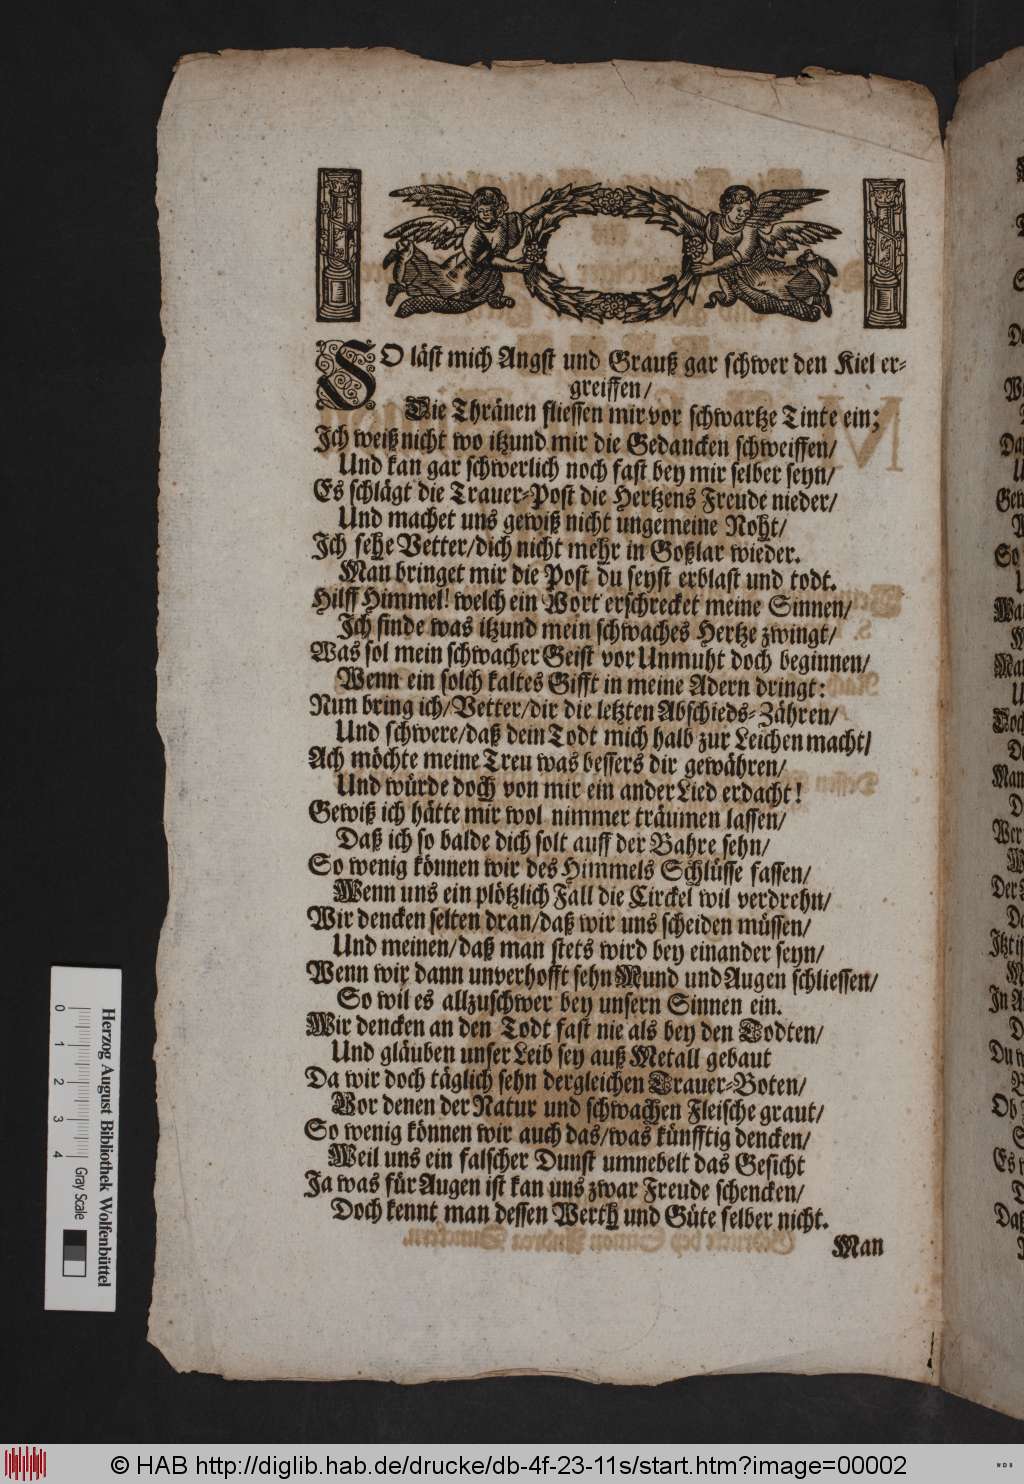 SO läst mich Angst und Grauß gar schwer den Kiel er-
greiffen/
Die Thränen fliessen mir vor schwartze Tinte ein;
Ich weiß nicht wo itzund mir die Gedancken schweiffen/
Und kan gar schwerlich noch fast bey mir selber seyn/
Es schlägt die Trauer-Post die Hertzens Freude nieder/
Und machet uns gewiß nicht ungemeine Noht/
Ich sehe Vetter/dich nicht mehr in Goßlar wieder.
Man bringet mir die Post du seyst erblast und todt.
Hilff Himmel! welch ein Wort erschrecket meine Sinnen/
Ich finde was itzund mein schwaches Hertze zwingt/
Was sol mein schwacher Geist vor Unmuht doch beginnen/
Wenn ein solch kaltes Gifft in meine Adern dringt:
Nun bring ich/Vetter/dir die letzten Abschieds-Zähren/
Und schwere/daß dein Todt mich halb zur Leichen macht/
Ach möchte meine Treu was bessers dir gewähren/
Und würde doch von mir ein ander Lied erdacht!
Gewiß ich hätte mir wol nimmer träumen lassen/
Daß ich so balde dich solt auff der Bahre sehn/
So wenig können wir des Himmels Schlüsse fassen/
Wenn uns ein plötzlich Fall die Circkel wil verdrehn/
Wir dencken selten dran/daß wir uns scheiden müssen/
Und meinen/daß man stets wird bey einander seyn/
Wenn wir dann unverhofft sehn Mund und Augen schliessen/
So wil es allzuschwer bey unsern Sinnen ein.
Wir dencken an den Todt fast nie als bey den Todten/
Und gläuben unser Leib sey auß Metall gebaut
Da wir doch täglich sehn dergleichen Trauer-Boten/
Vor denen der Natur und schwachen Fleische graut/
So wenig können wir auch das/was künfftig dencken/
Weil uns ein falscher Dunst umnebelt das Gesicht
Ja was für Augen ist kan uns zwar Freude schencken/
Doch kennt man dessen Werth und Güte selber nicht.
Man
Herzog August Bibliothek Wolfenbüttel
0 1 2 3 4 Gray Scale
© HAB http://diglib.hab.de/drucke/db-4f-23-11s/start.htm?image=00002